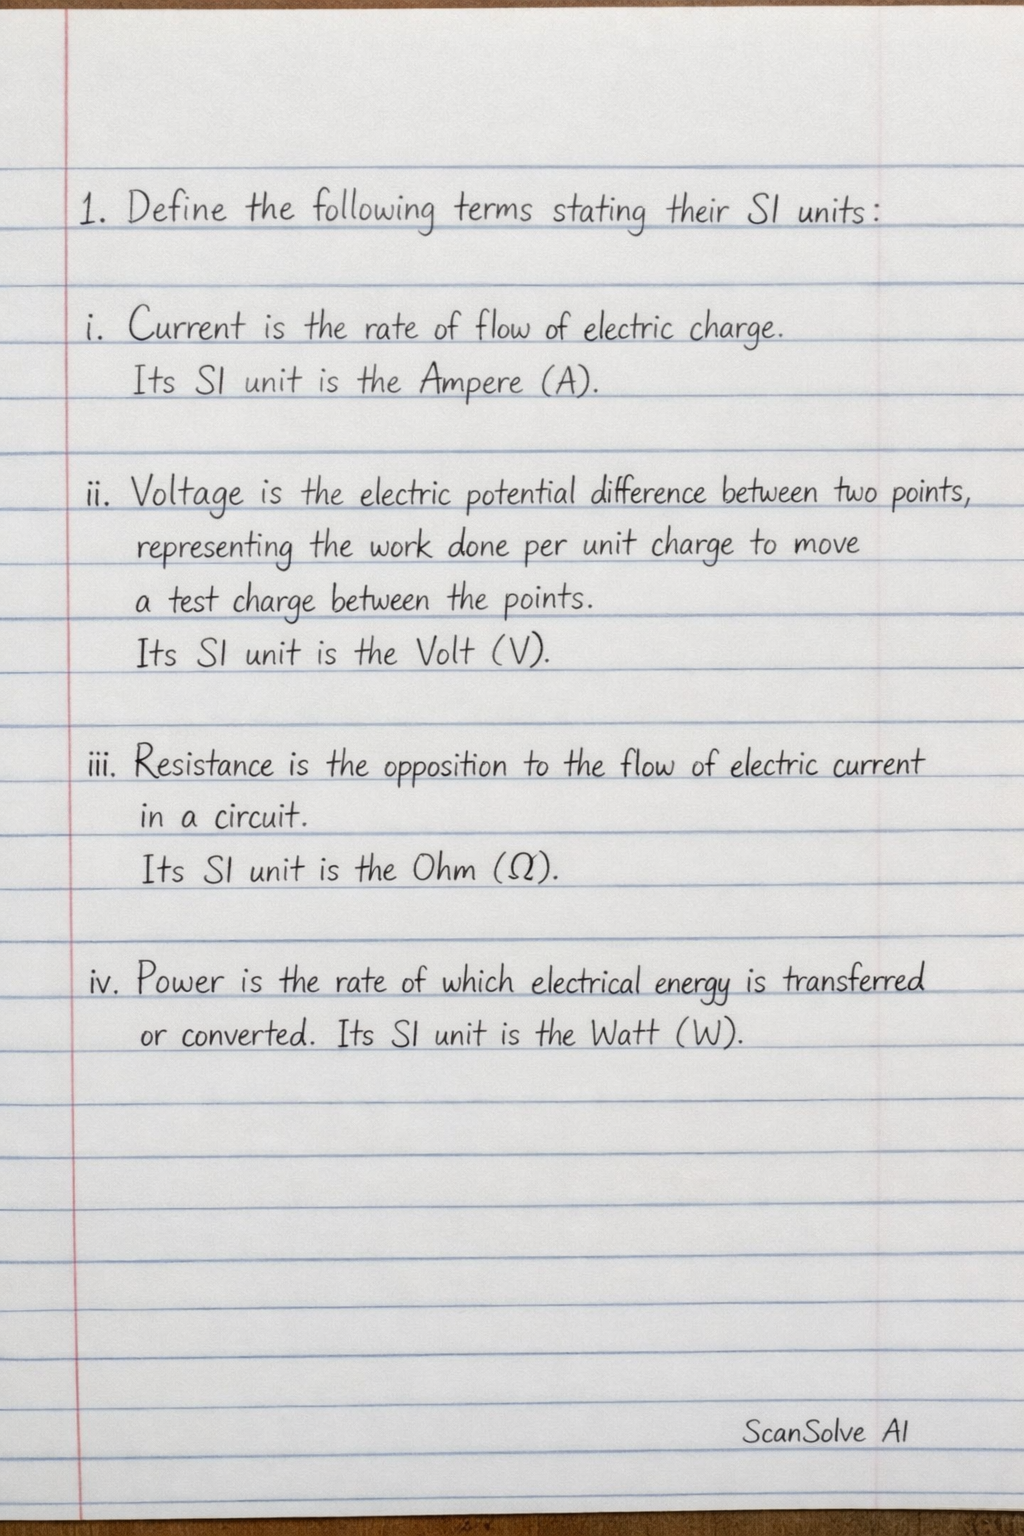 1. Define the following terms stating their SI units:
i. Current is the rate of flow of electric charge.
Its SI unit is the Ampere (A).
ii. Voltage is the electric potential difference between two points,
representing the work done per unit charge to move
a test charge between the points.
Its SI unit is the Volt (V).
iii. Resistance is the opposition to the flow of electric current
in a circuit.
Its SI unit is the Ohm (Ω).
iv. Power is the rate of which electrical energy is transferred
or converted. Its SI unit is the Watt (W).
ScanSolve AI